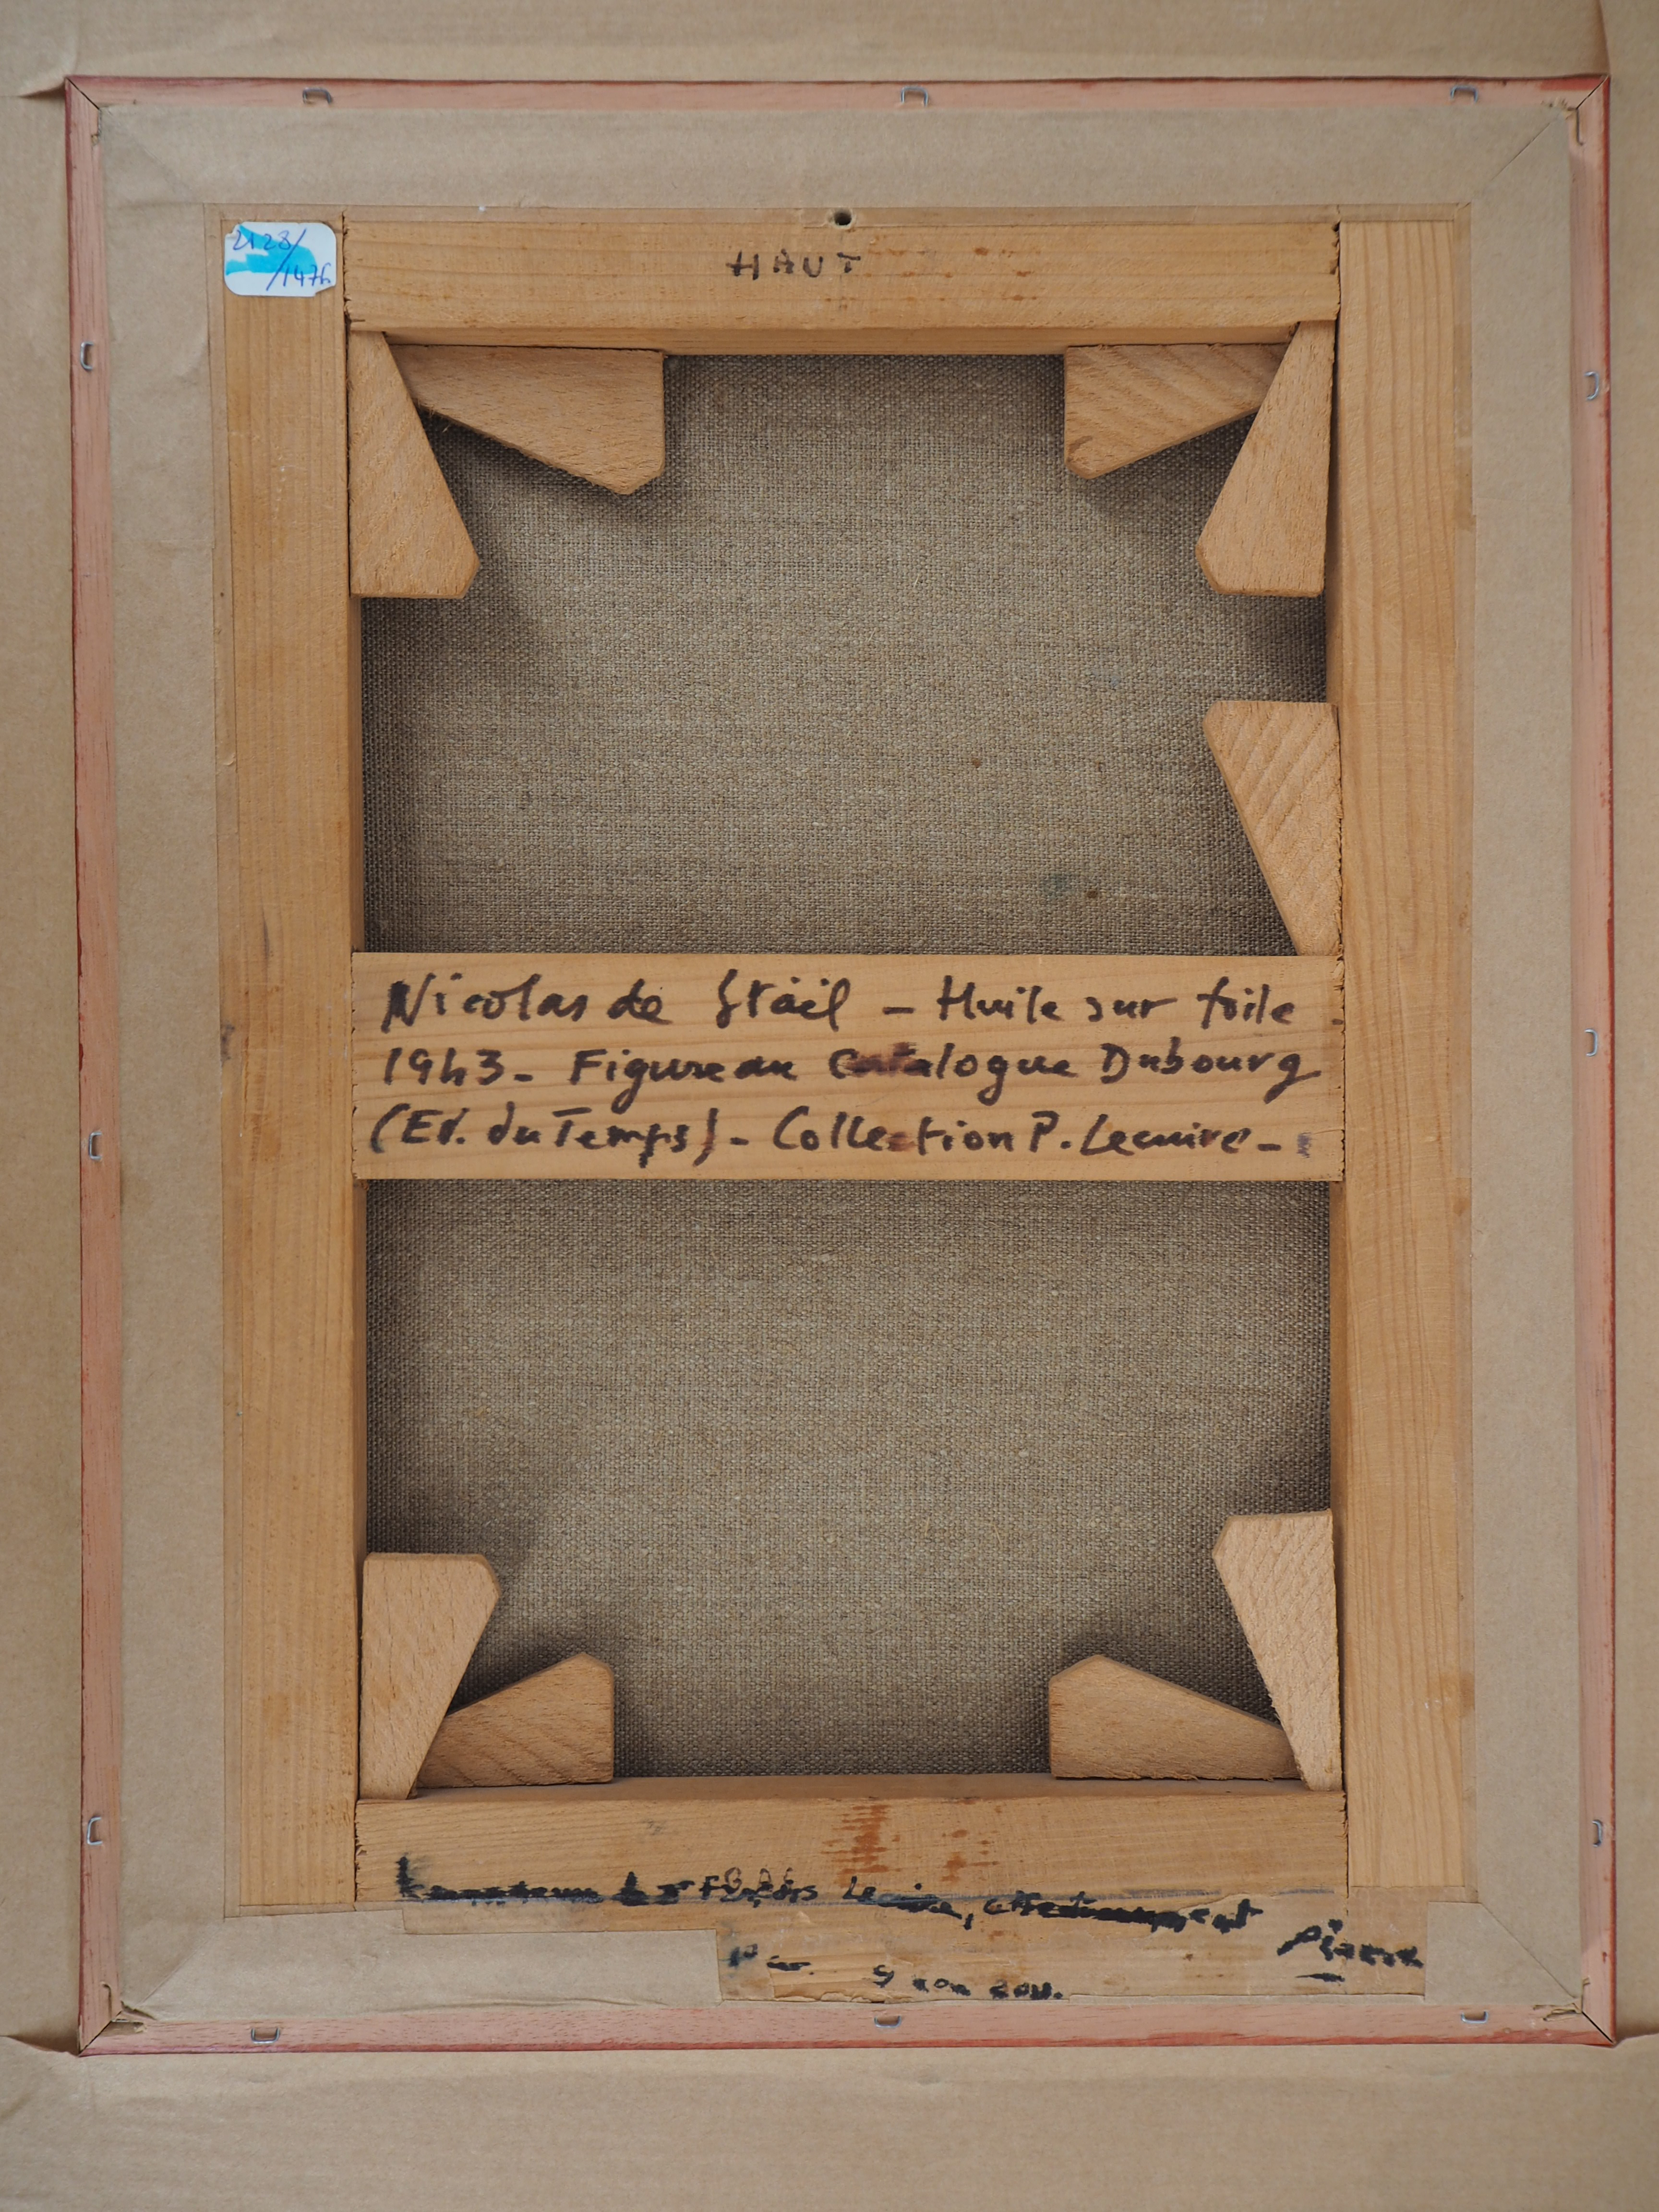 2128/
/1476
HAUT
Nicolas de Stäel – Huile sur toile -
1943 - Figure au Catalogue Dubourg
(Ed. du Temps) - Collection P. Lecuire -
Lecuire,
Pierre
9 2011.